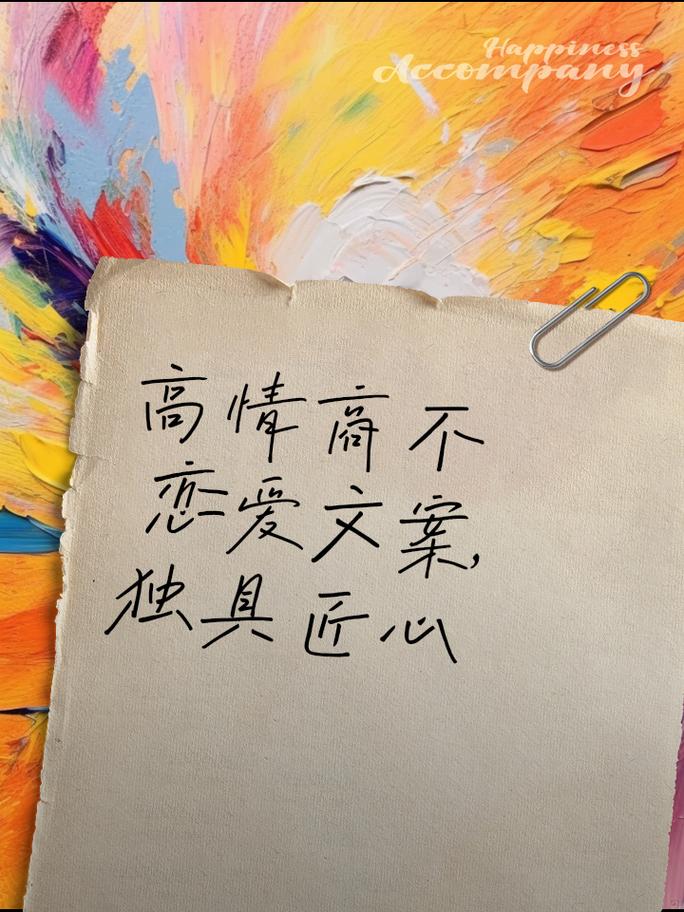 Happiness
Accompany
高情商不
恋爱文案，
独具匠心